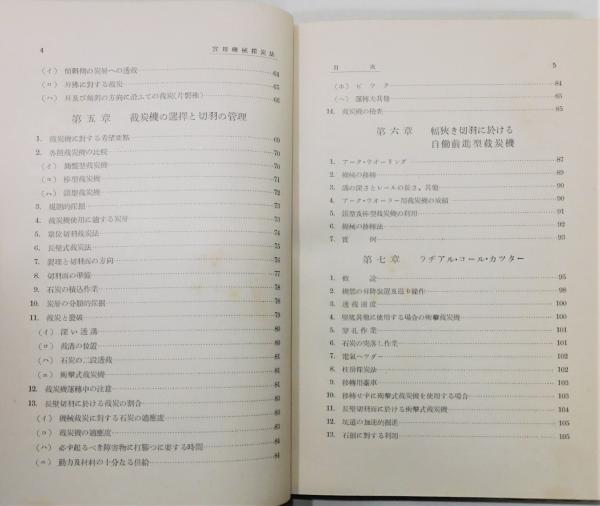 4
實用機械採炭法
(イ) 傾斜側の炭層への透截 64
(ロ) 昇拂に對する截炭 65
(ハ) 昇及び傾斜の方向に沿ふての截炭(片盤捲) 66
第五章 截炭機の選擇と切羽の管理
1. 截炭機に對する希望要點 69
2. 各種截炭機の比較 70
(イ) 圓盤型截炭機 70
(ロ) 棒型截炭機 71
(ハ) 鎖型截炭機 72
3. 規則的採掘 73
4. 截炭機使用に適する炭層 74
5. 單位切羽截炭法 75
6. 長壁式截炭法 75
7. 裂理と切羽面の方向 76
8. 切羽面の準備 77
9. 石炭の積込作業 78
10. 炭層の分類的採掘 78
11. 截炭と發破 79
(イ) 深い透溝 80
(ロ) 截溝の位置 80
(ハ) 石炭の二段透截 80
(ニ) 衝撃式截炭機 80
12. 截炭機運轉中の注意 81
13. 長壁切羽に於ける截炭の割合
(イ) 機械截炭に對する石炭の適應度
(ロ) 截炭機の適應度
(ハ) 必ず起るべき障害物に打勝つに要する時間 84
(ニ) 動力及材料の十分なる供給 84
目次
5
(ホ) ピック 84
(ヘ) 運轉夫其他 85
14. 截炭機の檢査 85
第六章 幅狹き切羽に於ける
自働前進型截炭機
1. アーク・ウオーリング 87
2. 機械の移轉 89
3. 溝の深さとレールの長さ、其他 90
4. アーク・ウオーラー用截炭機の成績 90
5. 鎖型及棒型截炭機の利用 91
6. 機械の移轉法 92
7. 實例 93
第七章 ラヂアル・コール・カツター
1. 概説 95
2. 機體の昇降裝置及送り操作 98
3. 透截速度 100
4. 堅坑其他に使用する場合の衝撃截炭機 100
5. 穿孔作業 101
6. 石炭の突落し作業 101
7. 電氣ヘツダー 102
8. 柱房採炭法 102
9. 移轉用臺車 102
10. 移轉せずに衝撃式截炭機を使用する場合 103
11. 長壁切羽面に於ける衝撃式截炭機 104
12. 坑道の加速的掘進 105
13. 石割に對する利用 105